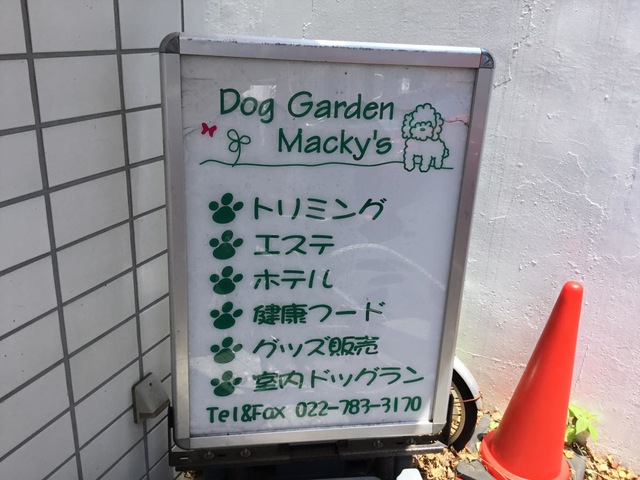 Dog Garden
Macky's
トリミング
エステ
ホテル
健康フード
グッズ販売
室内ドッグラン
Tel&Fax 022-783-3170